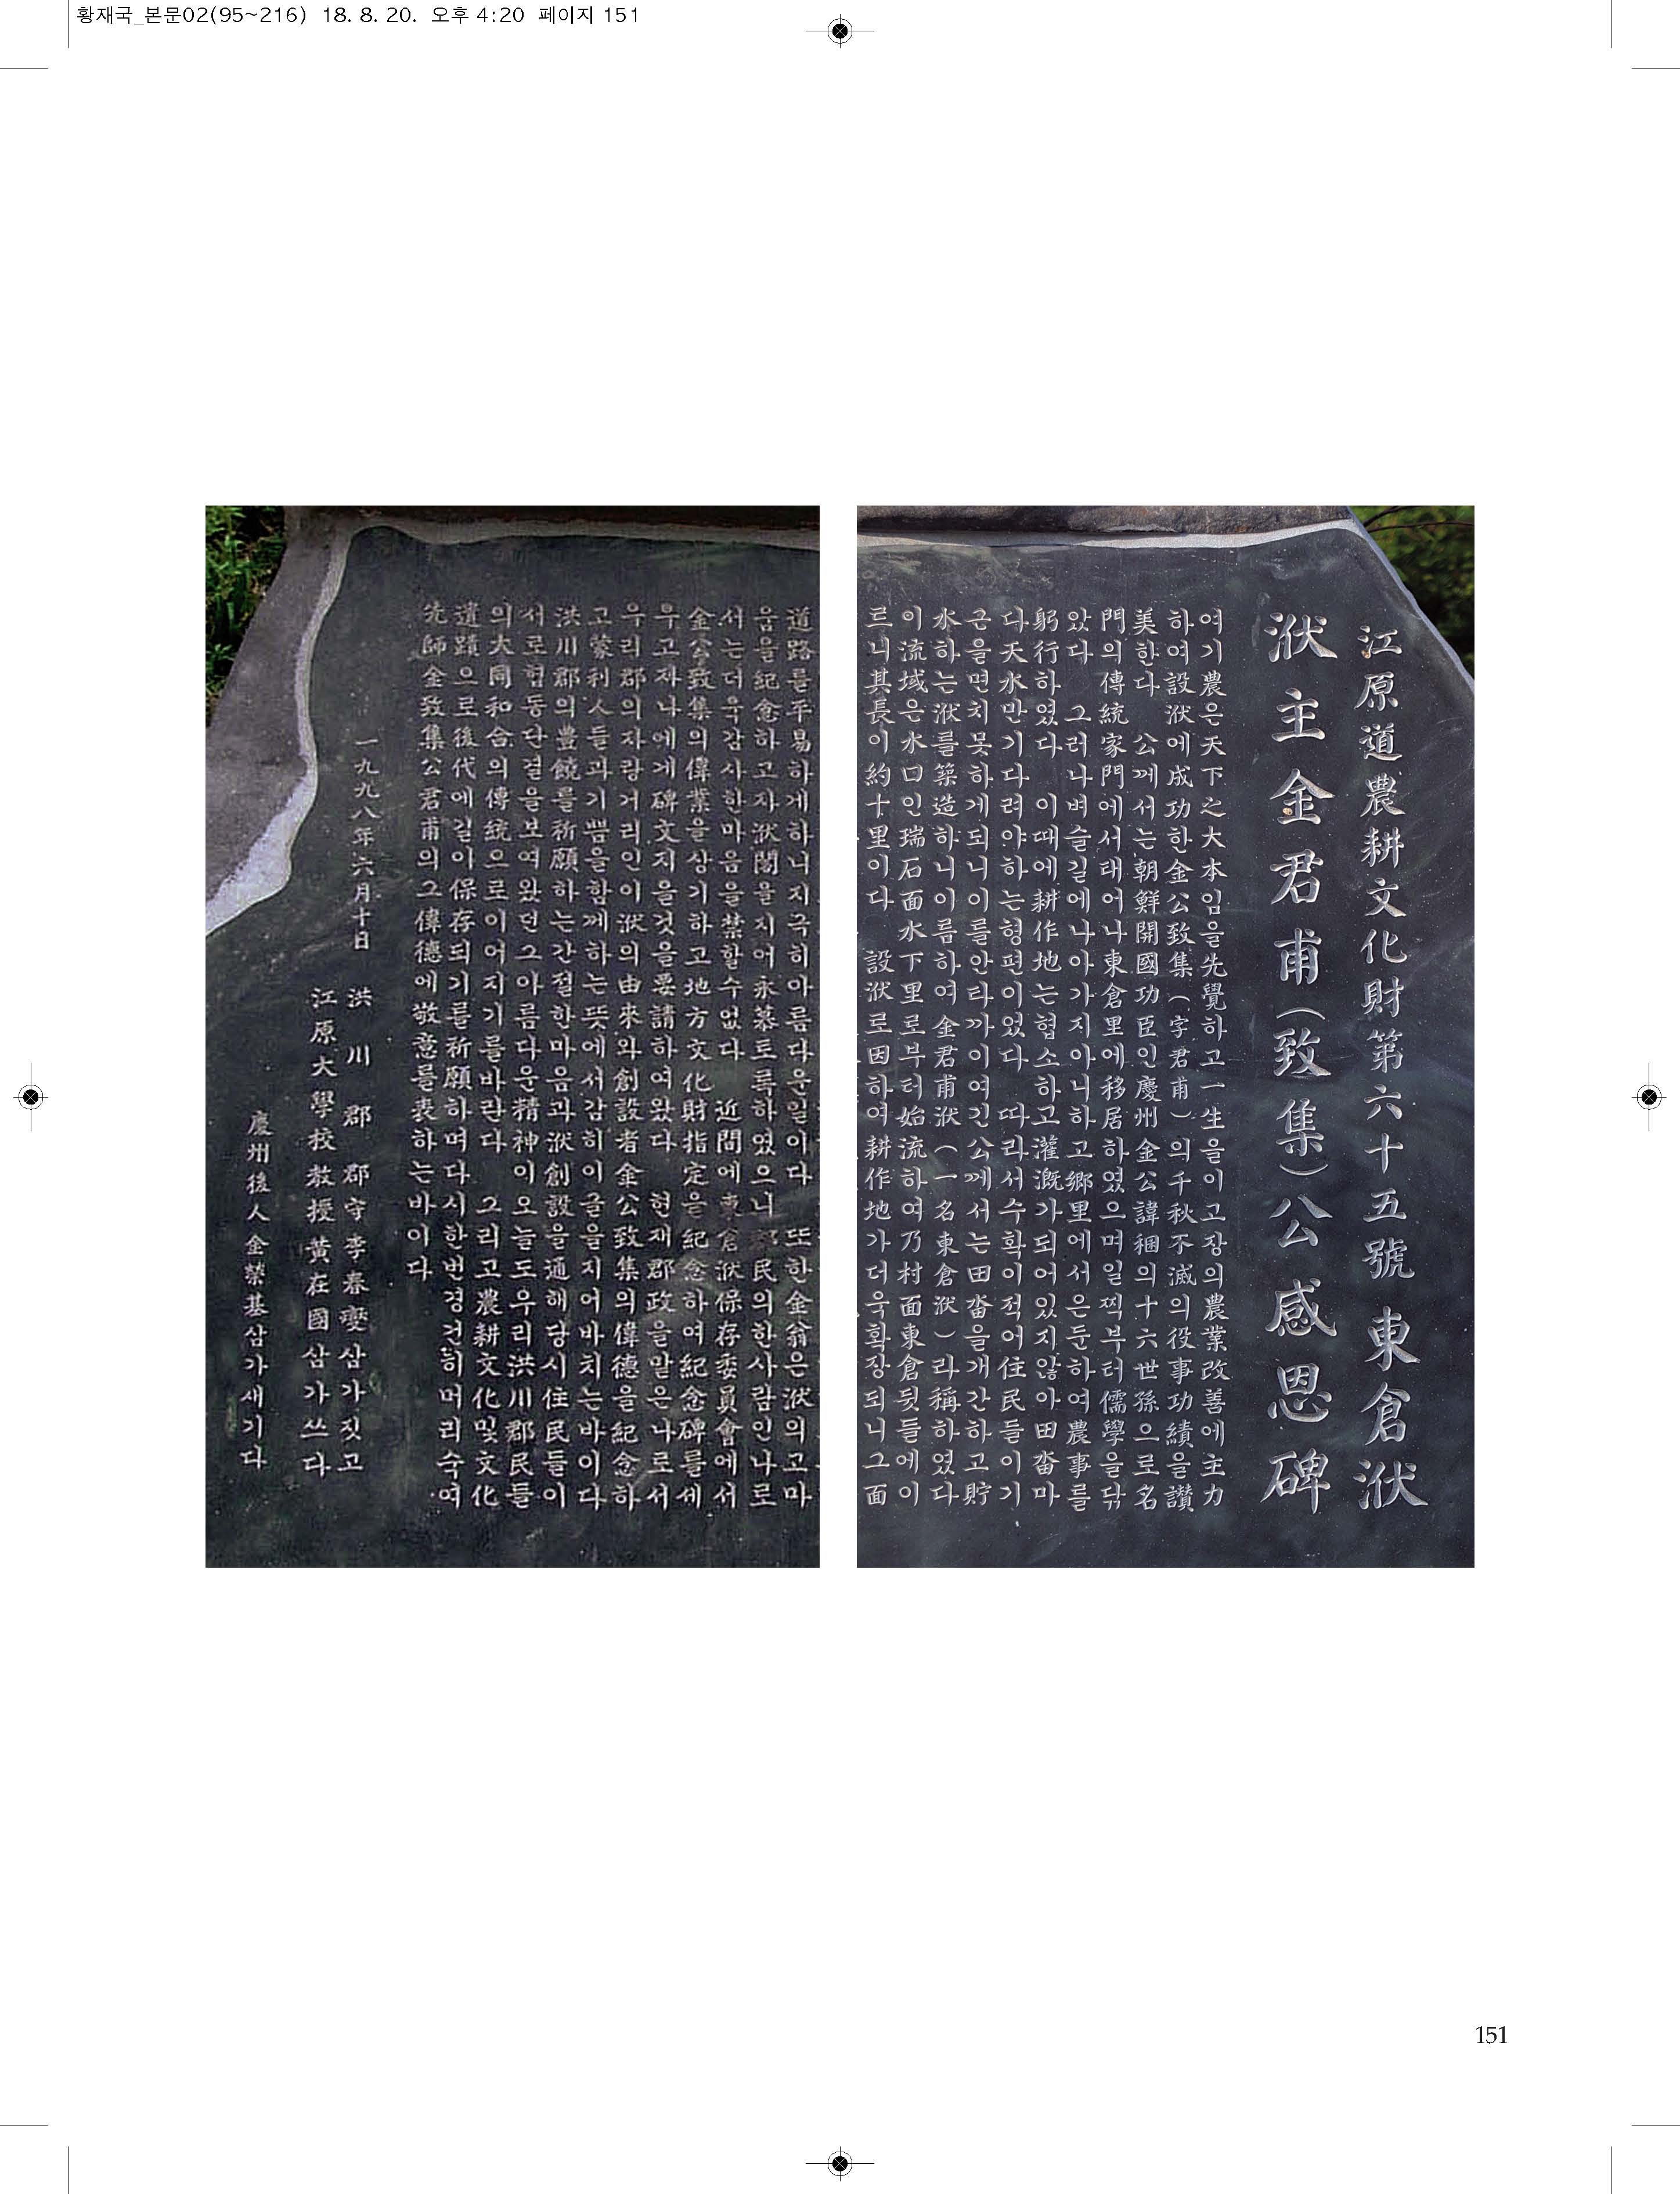 황재국_본문02(95~216) 18. 8. 20. 오후 4:20 페이지 151
江原道農耕文化財第六十五號 東倉洑
洑主金君甫(致集)公感恩碑
여기農은天下之大本임을先覺하고一生을이고장의農業改善에主力
하여設洑에成功한金公致集(字君甫)의千秋不滅의役事功績을讚
美한다 公께서는朝鮮開國功臣인慶州金公諱稇의十六世孫으로名
門의傳統家門에서태어나東倉里에移居하였으며일찍부터儒學을닦
았다 그러나벼슬길에나아가지아니하고鄉里에서은둔하여農事를
躬行하였다 이때에耕作地는협소하고灌漑가되어있지않아田畓마
다天水만기다려야하는형편이었다 따라서수확이적어住民들이기
근을면치못하게되니이를안타까이여긴公께서는田畓을개간하고貯
水하는洑를築造하니이름하여金君甫洑(一名東倉洑)라稱하였다
이流域은水口인瑞石面水下里로부터始流하여乃村面東倉뒷들에이
르니其長이約十里이다 設洑로因하여耕作地가더욱확장되니그面
道路를平易하게하니지극히아름다운일이다 또한金翁은洑의고마
움을紀念하고자洑閣을지어永慕토록하였으니 民의한사람인나로
서는더욱감사한마음을禁할수없다 近間에東倉洑保存委員會에서
金公致集의偉業을상기하고地方文化財指定을紀念하여紀念碑를세
우고자나에게碑文지을것을要請하여왔다 현재郡政을맡은나로서
우리郡의자랑거리인이洑의由來와創設者金公致集의偉德을紀念하
고蒙利人들과기쁨을함께하는뜻에서감히이글을지어바치는바이다
洪川郡의豊饒를祈願하는간절한마음과洑創設을通해당시住民들이
서로협동단결을보여왔던그아름다운精神이오늘도우리洪川郡民들
의大同和合의傳統으로이어지기를바란다 그리고農耕文化및文化
遺蹟으로後代에길이保存되기를祈願하며다시한번경건히머리숙여
先師金致集公君甫의그偉德에敬意를表하는바이다
一九九八年六月十日
洪川郡 郡守李春燮삼가짓고
江原大學校敎授黃在國삼가쓰다
慶州後人金榮基삼가새기다
151